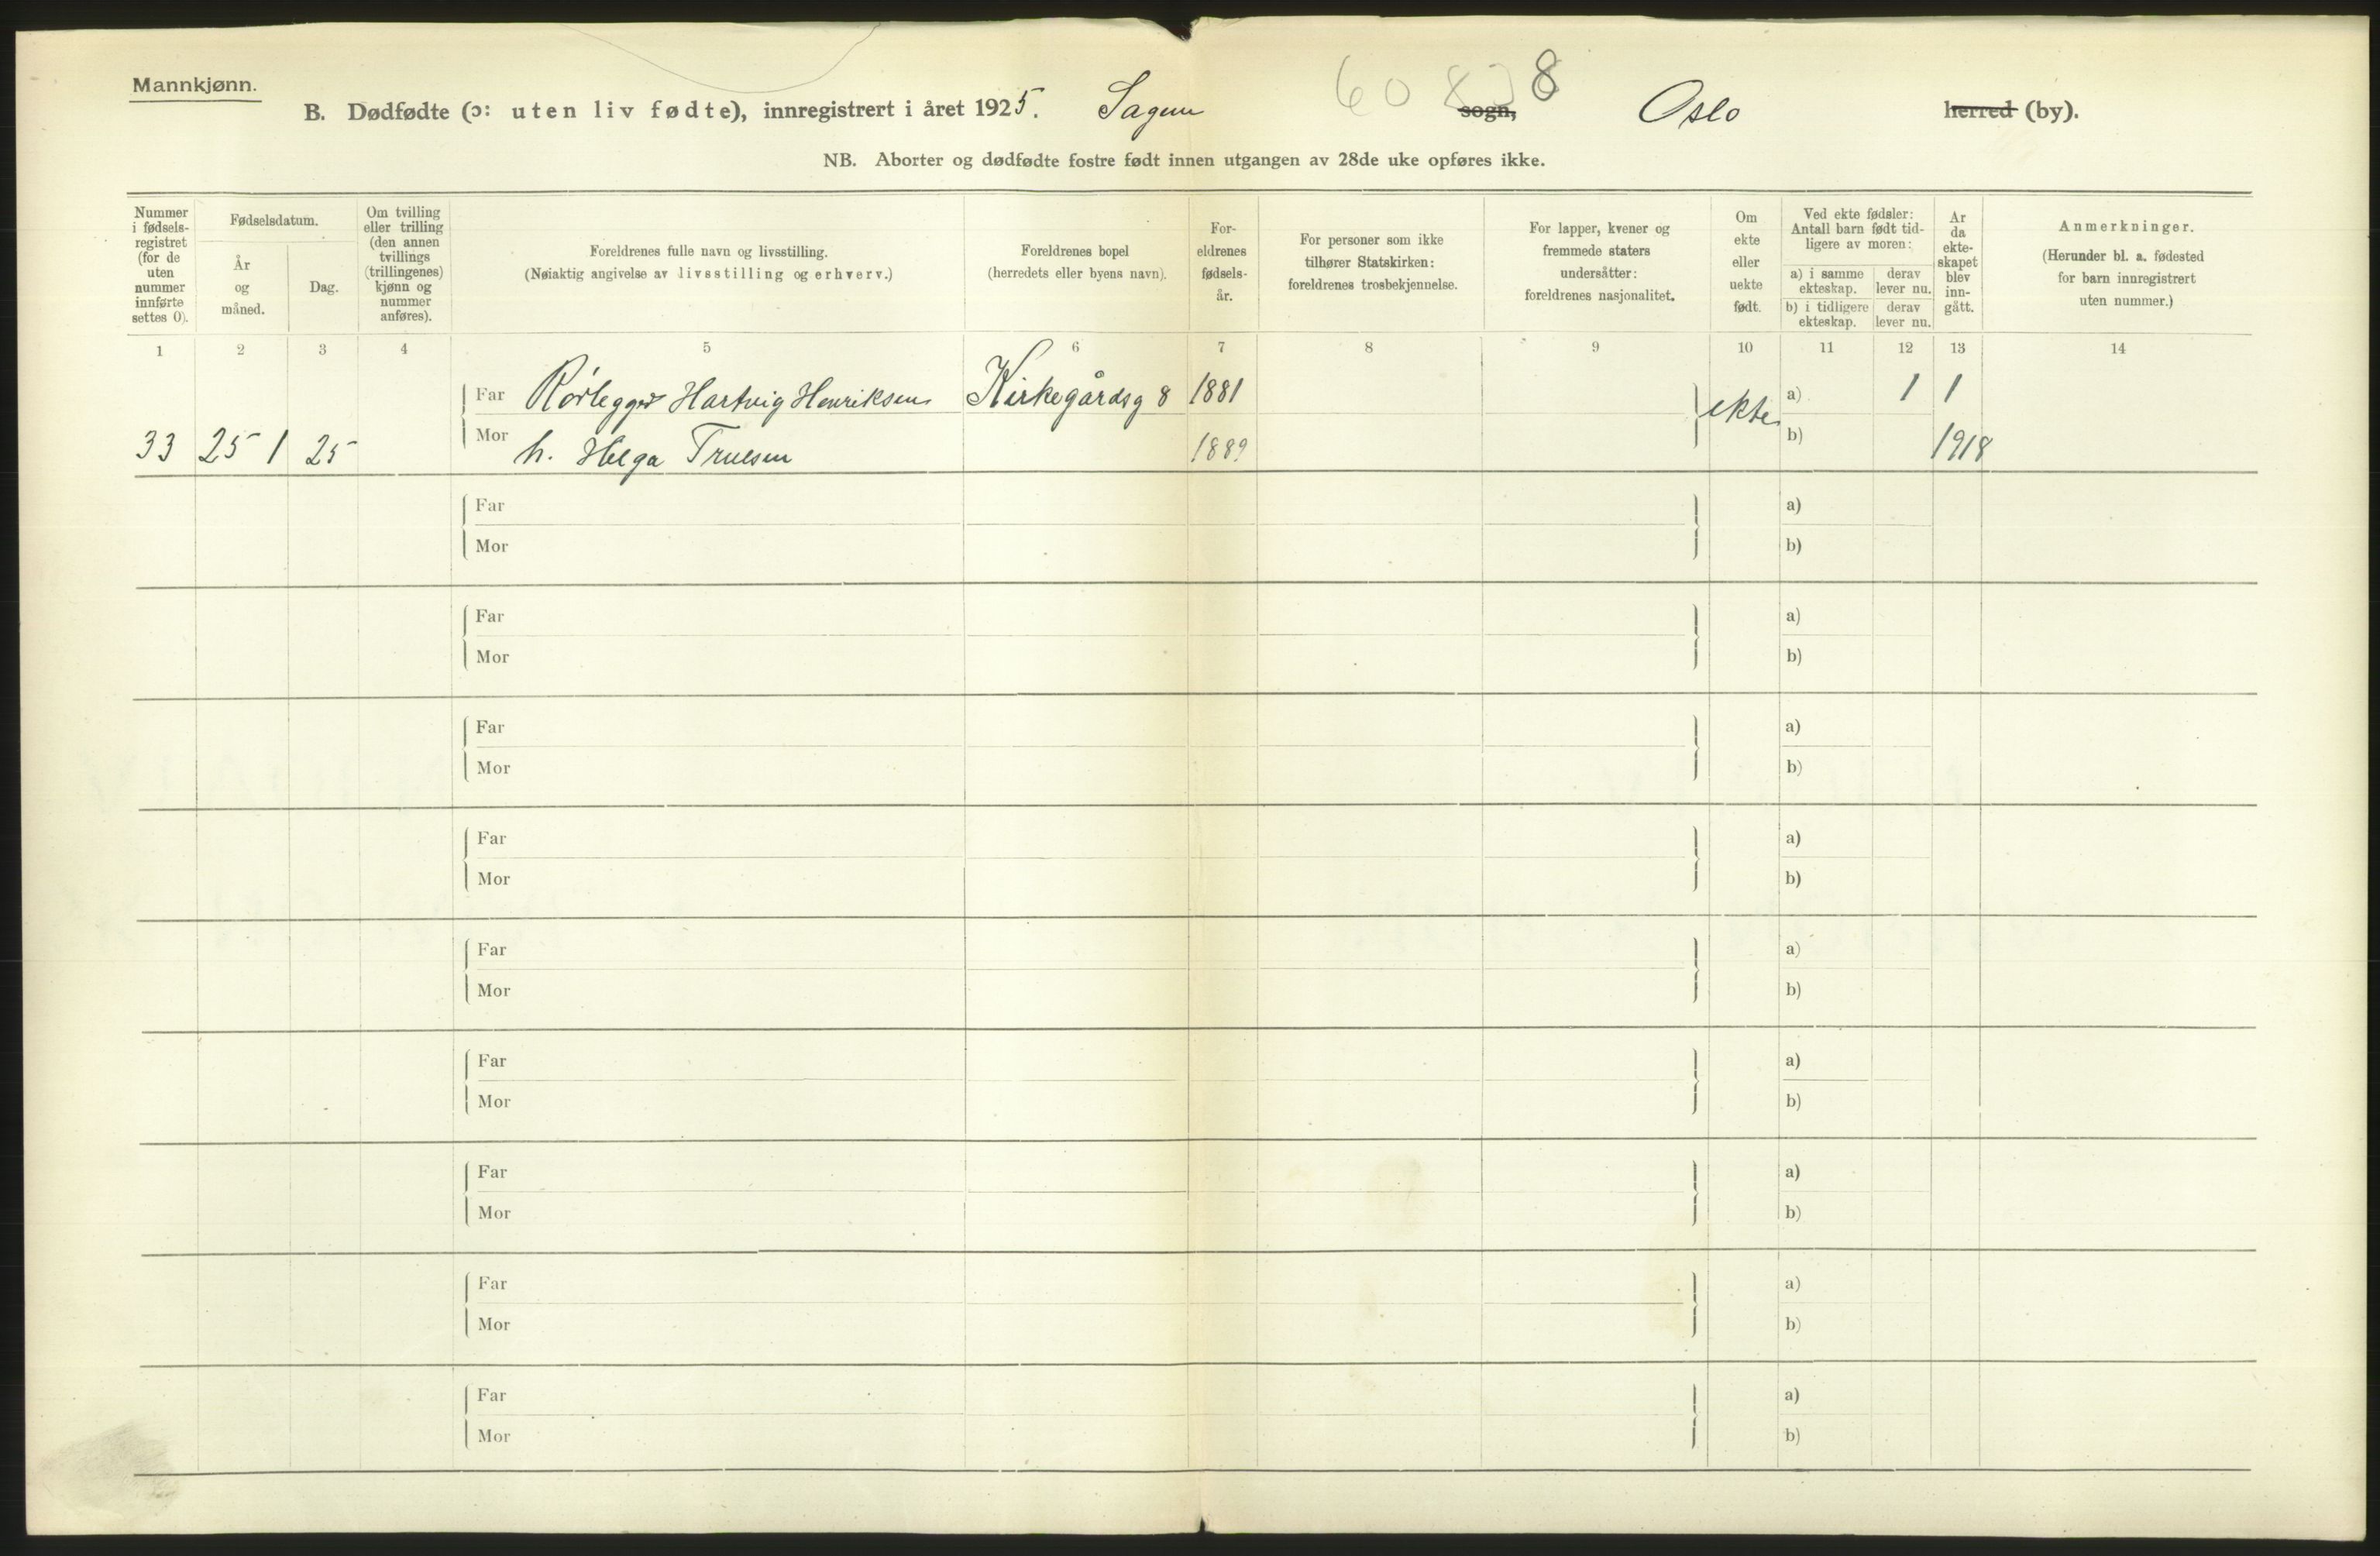 Mannkjønn.
60 8
B. Dødfødte (ɔ: uten liv fødte), innregistrert i året 1925. Sagene sogn, Oslo herred (by).
NB. Aborter og dødfødte fostre født innen utgangen av 28de uke opføres ikke.
Nummer
i fødsels-
registret
(for de
uten
nummer
innførte
settes 0).
Fødselsdatum.
År
og
måned.
Dag.
Om tvilling
eller trilling
(den annen
tvillings
(trillingenes)
kjønn og
nummer
anføres).
Foreldrenes fulle navn og livsstilling.
(Nøiaktig angivelse av livsstilling og erhverv.)
Foreldrenes bopel
(herredets eller byens navn).
For-
eldrenes
fødsels-
år.
For personer som ikke
tilhører Statskirken:
foreldrenes trosbekjennelse.
For lapper, kvener og
fremmede staters
undersåtter:
foreldrenes nasjonalitet.
Om
ekte
eller
uekte
født.
Ved ekte fødsler:
Antall barn født tid-
ligere av moren:
a) i samme
ekteskap.
derav
lever nu.
b) i tidligere
ekteskap.
derav
lever nu.
År
da
ekte-
skapet
blev
inn-
gått.
Anmerkninger.
(Herunder bl. a. fødested
for barn innregistrert
uten nummer.)
1 2 3 4 5 6 7 8 9 10 11 12 13 14
Far Rørlegger Hartvig Henriksen Kirkegårdsg 8 1881 ekte a) 1 1
33 25 1 25 Mor h. Helga Truesen 1889 b) 1918
Far a)
Mor b)
Far a)
Mor b)
Far a)
Mor b)
Far a)
Mor b)
Far a)
Mor b)
Far a)
Mor b)
Far a)
Mor b)
Far a)
Mor b)
Far a)
Mor b)